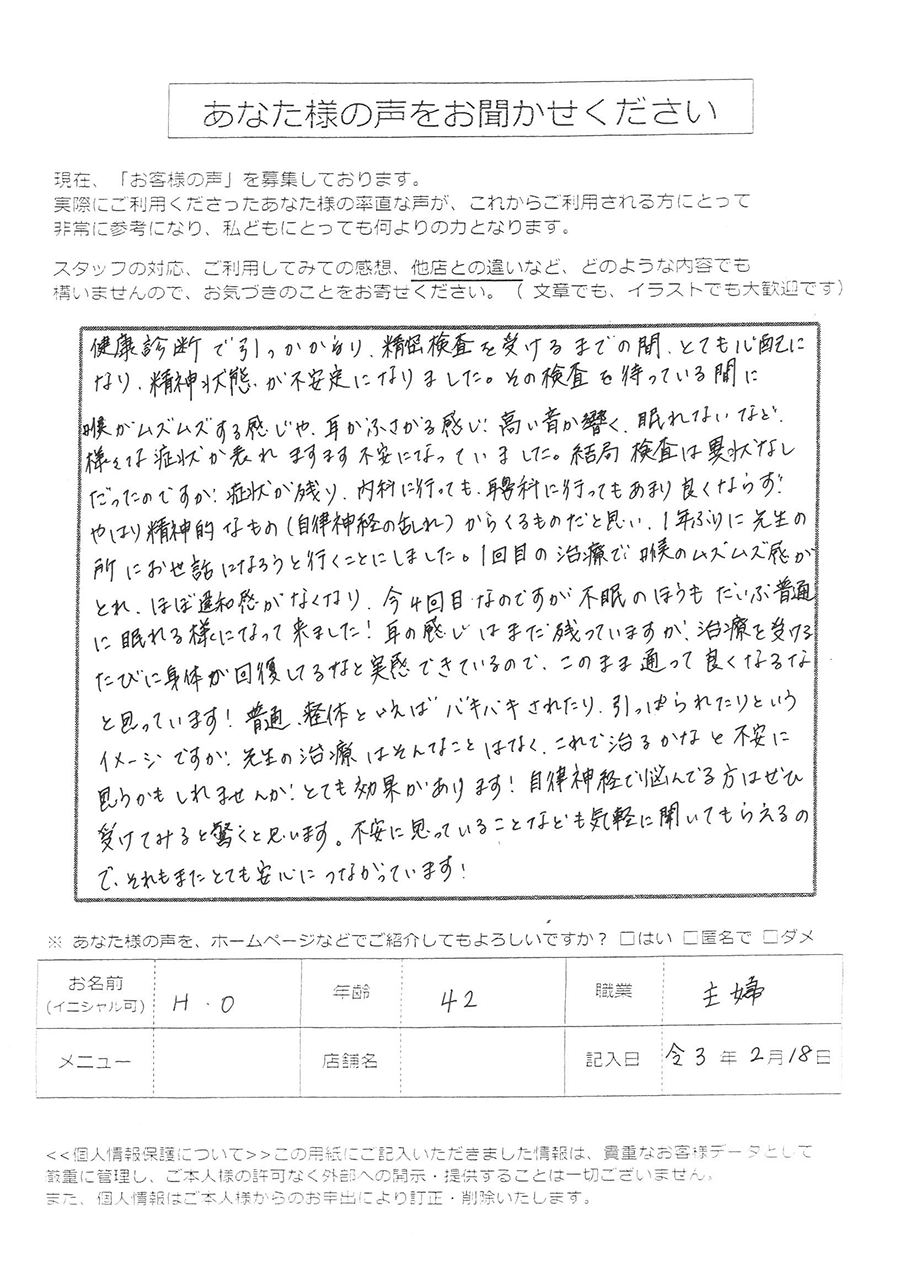 あなた様の声をお聞かせください
現在、「お客様の声」を募集しております。
実際にご利用くださったあなた様の率直な声が、これからご利用される方にとって
非常に参考になり、私どもにとっても何よりの力となります。
スタッフの対応、ご利用してみての感想、他店との違いなど、どのような内容でも
構いませんので、お気づきのことをお寄せください。（ 文章でも、イラストでも大歓迎です）
健康診断で引っかかり、精密検査を受けるまでの間、とても心配に
なり、精神状態が不安定になりました。その検査を待っている間に
喉がムズムズする感じや、耳がふさがる感じ、高い音が響く、眠れないなど、
様々な症状が表れますます不安になっていました。結局検査は異状なし
だったのですが、症状が残り、内科に行っても、耳鼻科に行ってもあまり良くならず、
やはり精神的なもの(自律神経の乱れ)からくるものだと思い、1年ぶりに先生の
所にお世話になろうと行くことにしました。1回目の治療で、喉のムズムズ感が
とれ、ほぼ違和感がなくなり、今4回目なのですが不眠のほうもだいぶ普通
に眠れる様になって来ました！耳の感じはまだ残っていますが、治療を受ける
たびに身体が回復してるなと実感できているので、このまま通って良くなるな
と思っています！普通、整体といえばバキバキされたり、引っぱられたりという
イメージですが、先生の治療はそんなことはなく、これで治るかなと不安に
思うかもしれませんが、とても効果があります！自律神経で悩んでる方はぜひ
受けてみると驚くと思います。不安に思っていることなども気軽に聞いてもらえるの
で、それもまたとても安心につながっています！
※ あなた様の声を、ホームページなどでご紹介してもよろしいですか？ □はい □匿名で □ダメ
お名前 (イニシャル可) H・O 年齢 42 職業 主婦
メニュー 店舗名 記入日 令3年2月18日
<<個人情報保護について>>この用紙にご記入いただきました情報は、貴重なお客様データとして
厳重に管理し、ご本人様の許可なく外部への開示・提供することは一切ございません。
また、個人情報はご本人様からのお申出により訂正・削除いたします。